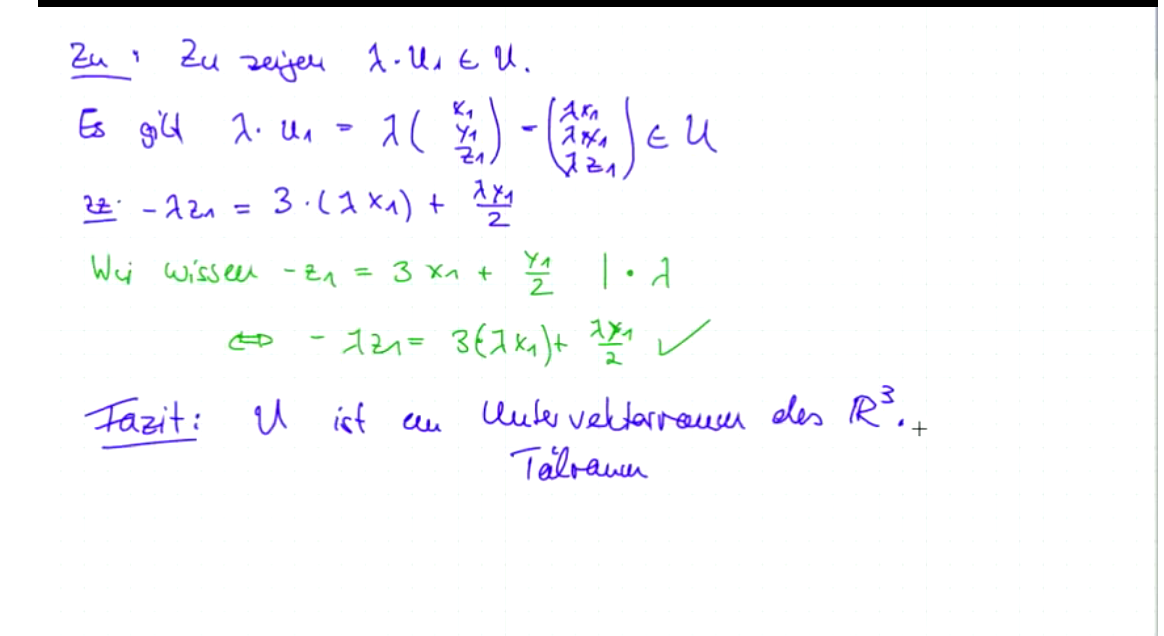 Zu: Zu zeigen λ·u₁ ∈ U.
Es gilt λ·u₁ = λ(x₁ y₁ z₁) = (λx₁ λy₁ λz₁) ∈ U
zz: -λz₁ = 3·(λx₁) + λy₁/2
Wir wissen -z₁ = 3x₁ + y₁/2 | · λ
⇔ -λz₁ = 3(λx₁) + λy₁/2 ✓
Fazit: U ist ein Untervektorraum des ℝ³.
Teilraum